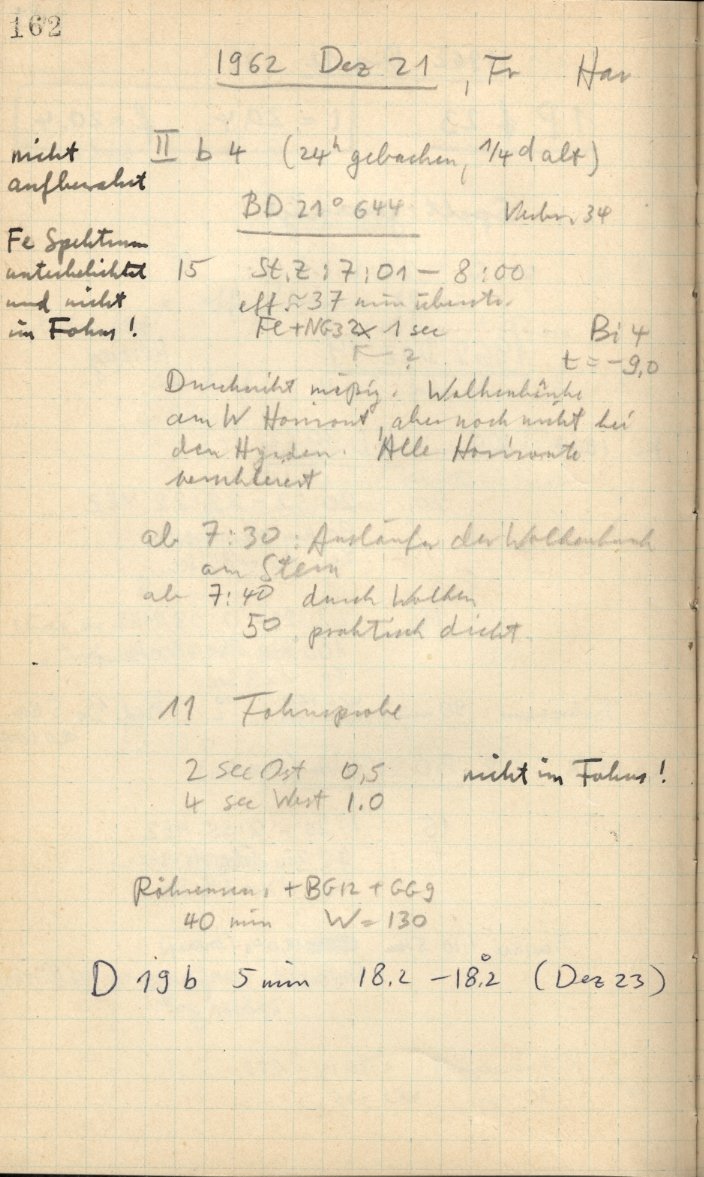 162
1962 Dez 21, Fr Hav
nicht
aufbewahrt
II b 4 (24h gebacken, 1/4 d alt)
BD 21° 644 34
Fe Spektrum
unterbelichtet
und nicht
im Fokus!
15 St.Z: 7:01 – 8:00
eff. ≈ 37 min
Fe+NG3 2x 1 sec Bi 4
F ? t = -9,0
Durchsicht mäßig. Wolkenbänke
am W Horizont, aber noch nicht bei
den Hyaden. Alle Horizonte
verschleiert
ab 7:30: Ausläufer der Wolkenbank
am Stern
ab 7:40 durch Wolken
50 praktisch dicht.
11 Fokusprobe
2 sec Ost 0,5 nicht im Fokus!
4 sec West 1.0
Röhrensens. +BG12 + GG9
40 min W = 130
D 19b 5 min 18.2 – 18°.2 (Dez 23)